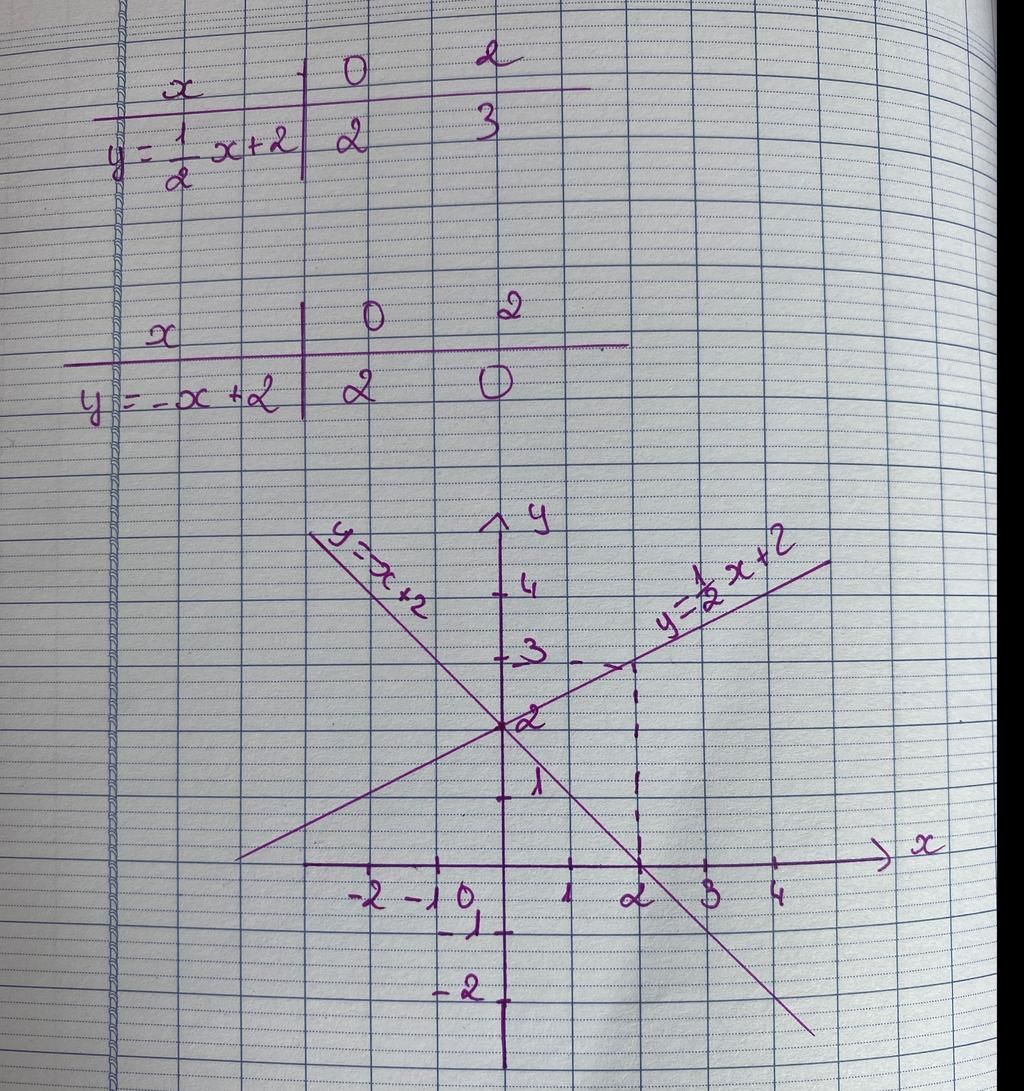 x 0 2
y = 1/2 x + 2 2 3
x 0 2
y = -x + 2 2 0
y
y = -x + 2
y = 1/2 x + 2
4
3
2
1
x
-2 -1 0 1 2 3 4
-1
-2